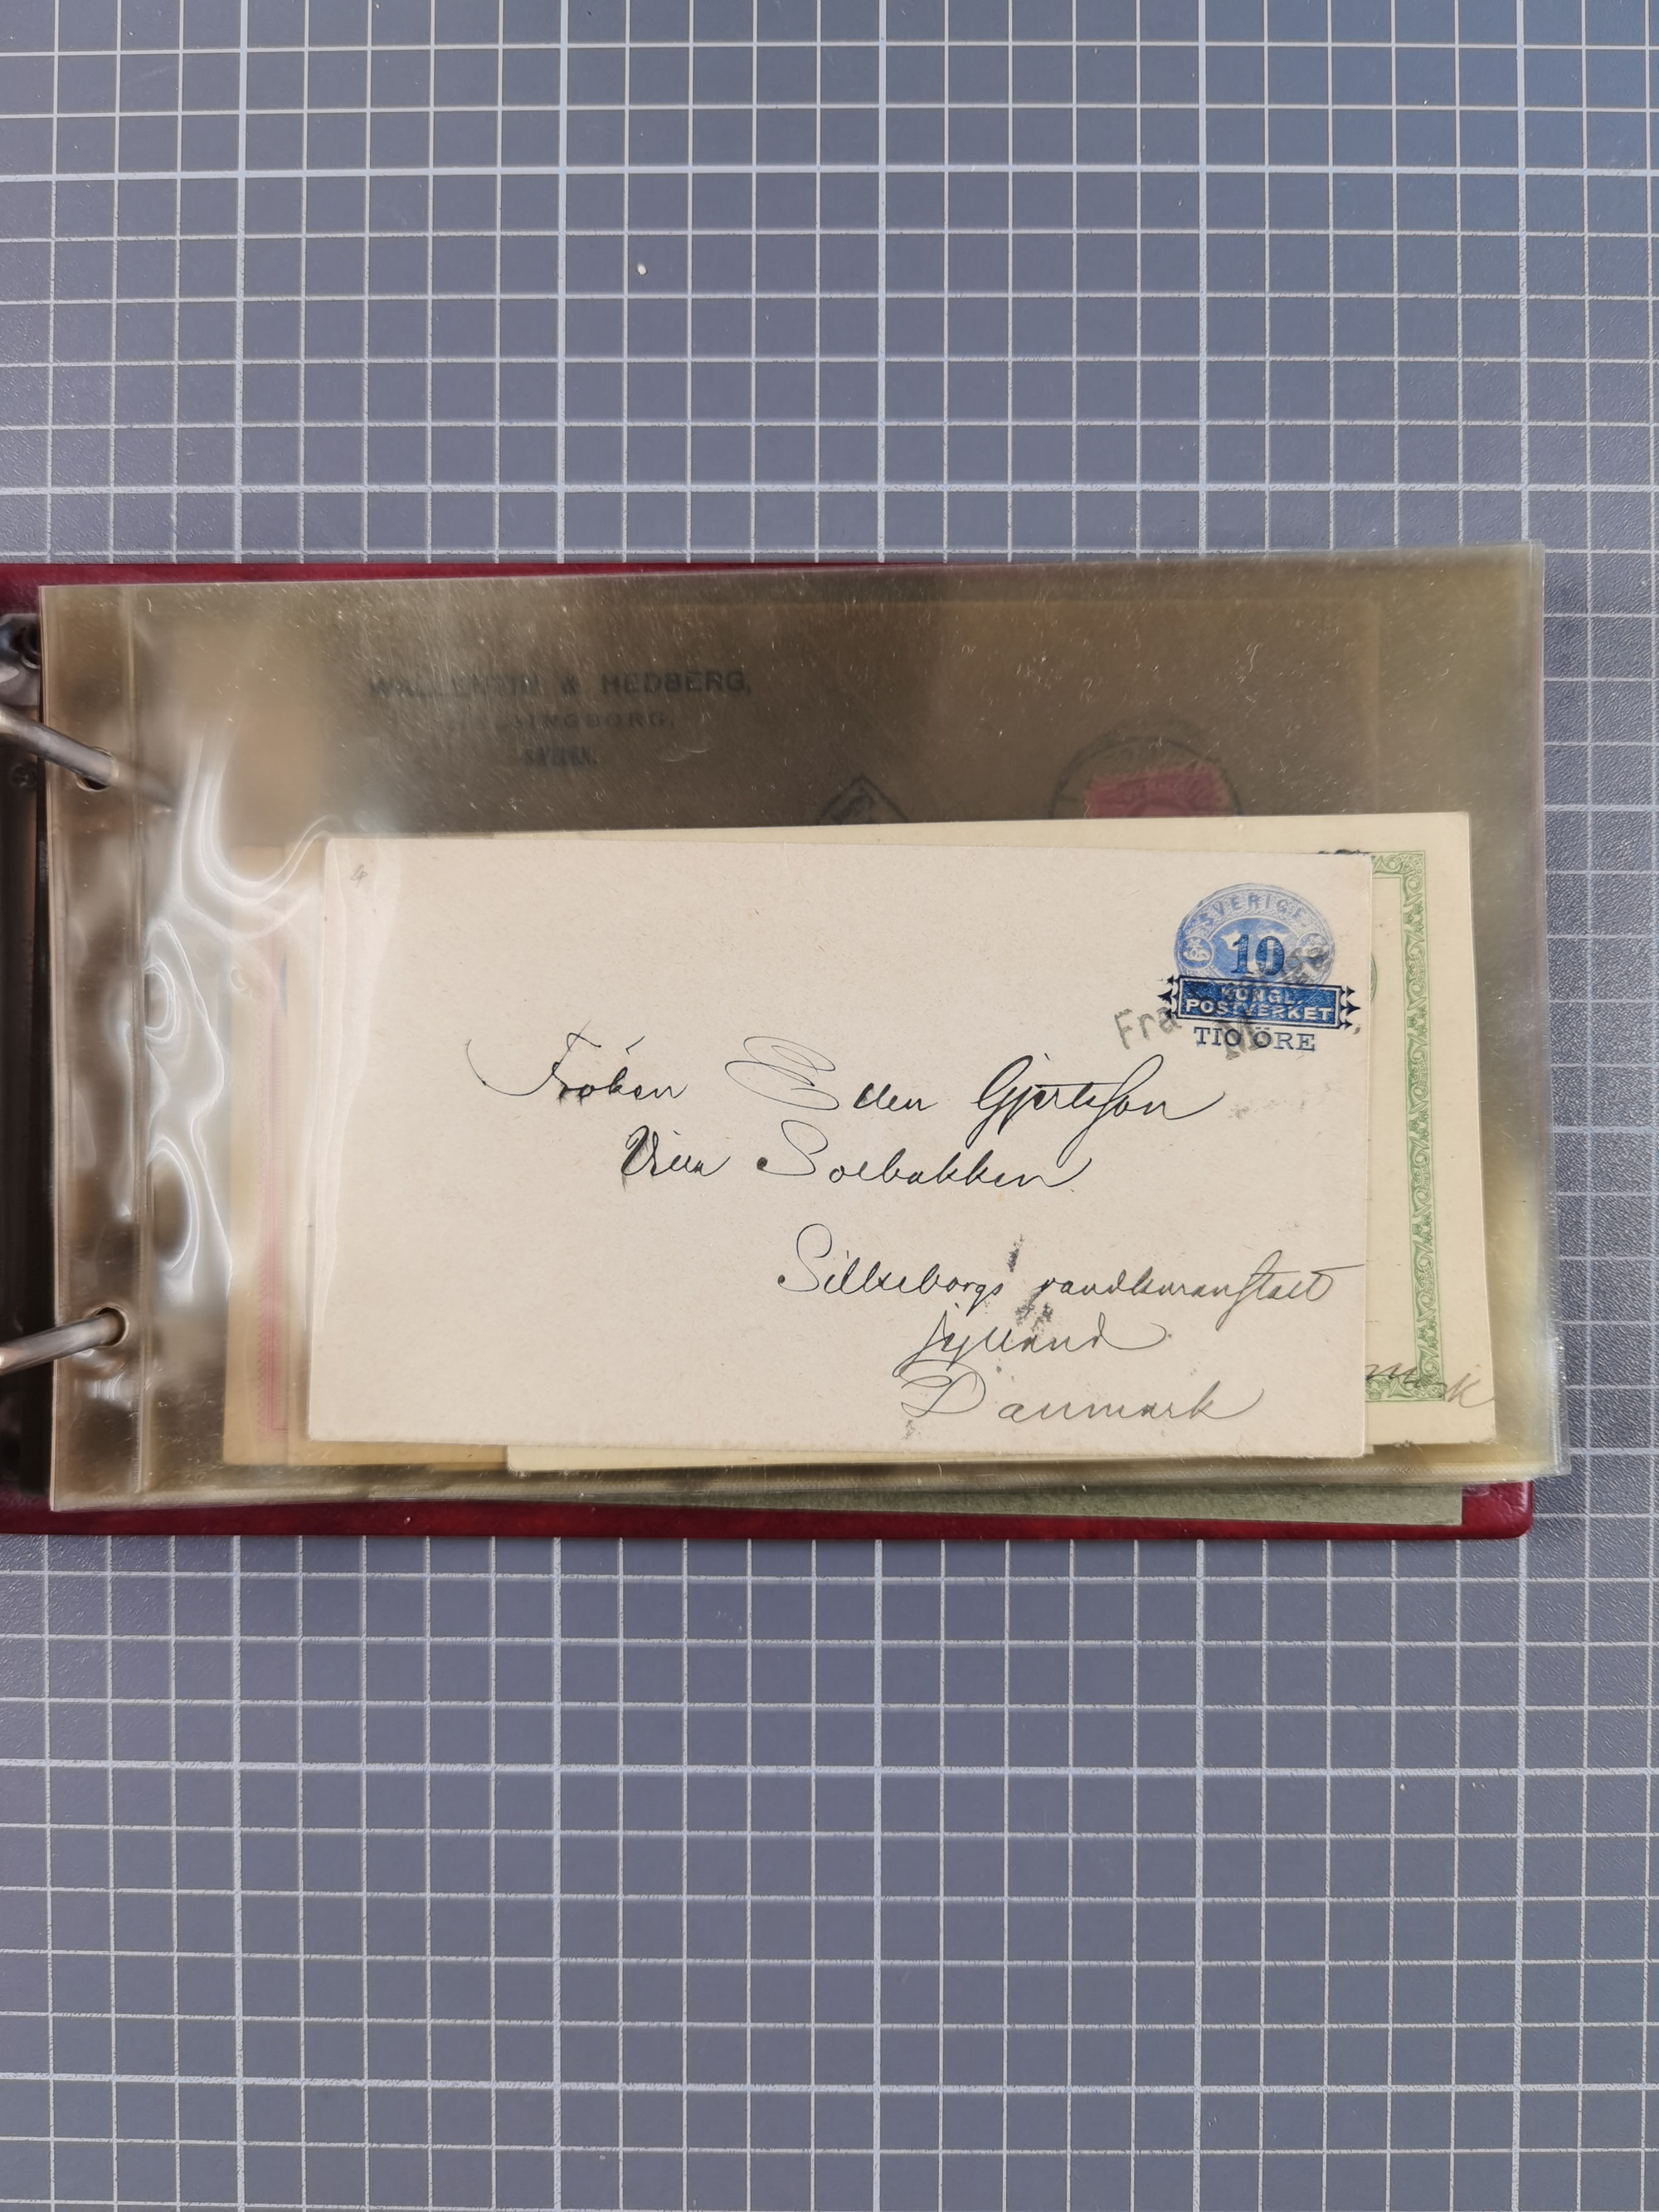 WALLENTIN & HEDBERG,
HELSINGBORG,
SVERIGE
10
KONGL.
POSTVERKET
TIO ÖRE
Fra
Fröken Ellen Gjertsson
Villa Soebakken
Silkeborgs vandkuranstalt
Jylland
Danmark